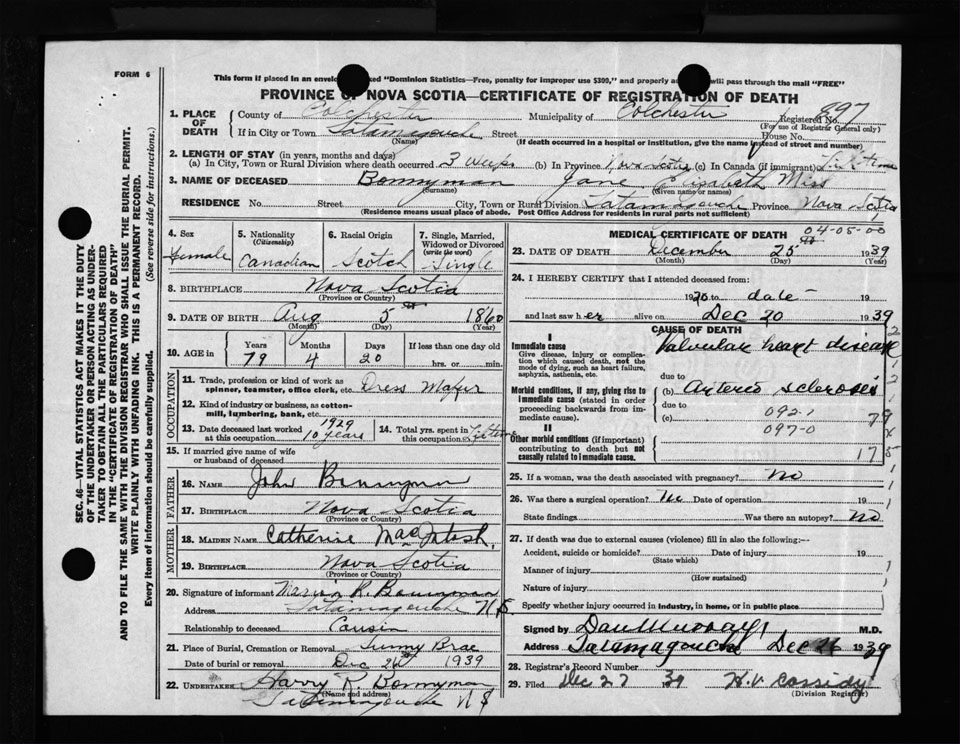 FORM 6
This form if placed in an envelo ked "Dominion Statistics—Free, penalty for improper use $300," and properly ad will pass through the mail "FREE"
PROVINCE OF NOVA SCOTIA—CERTIFICATE OF REGISTRATION OF DEATH
897
1. PLACE OF DEATH County of Colchester Municipality of Colchester Registered No.
(For use of Registrar General only)
If in City or Town Tatamagouche Street House No.
(Name) (If death occurred in a hospital or institution, give the name instead of street and number)
2. LENGTH OF STAY (in years, months and days)
(a) In City, Town or Rural Division where death occurred 3 weeks (b) In Province Nova Scotia (c) In Canada (if immigrant) Lifetime
3. NAME OF DECEASED Bonnyman Jane Elizabeth Miss
(Surname) (Given name or names)
RESIDENCE No. Street City, Town or Rural Division Tatamagouche Province Nova Scotia
(Residence means usual place of abode. Post Office Address for residents in rural parts not sufficient)
4. Sex Female
5. Nationality (Citizenship) Canadian
6. Racial Origin Scotch
7. Single, Married, Widowed or Divorced (write the word) Single
8. BIRTHPLACE Nova Scotia
(Province or Country)
9. DATE OF BIRTH Aug 5 1860
(Month) (Day) (Year)
10. AGE in Years Months Days If less than one day old
79 4 20 hrs. or min.
OCCUPATION
11. Trade, profession or kind of work as spinner, teamster, office clerk, etc. Dress Maker
12. Kind of industry or business, as cotton-mill, lumbering, bank, etc.
13. Date deceased last worked at this occupation 1929 10 years
14. Total yrs. spent in this occupation Lifetime
15. If married give name of wife or husband of deceased
FATHER
16. NAME John Bonnyman
17. BIRTHPLACE Nova Scotia
(Province or Country)
MOTHER
18. MAIDEN NAME Catherine MacIntosh.
19. BIRTHPLACE Nova Scotia
(Province or Country)
20. Signature of informant Marion R. Bonnyman
Address Tatamagouche N S
Relationship to deceased Cousin
21. Place of Burial, Cremation or Removal Sunny Brae
Date of burial or removal Dec 26 1939
22. UNDERTAKER Harry R. Bonnyman
(Name and address)
Tatamagouche N S
MEDICAL CERTIFICATE OF DEATH 04-05-00
23. DATE OF DEATH December 25 1939
(Month) (Day) (Year)
24. I HEREBY CERTIFY that I attended deceased from:
1930 to date 19
and last saw her alive on Dec 20 1939
CAUSE OF DEATH
I
Immediate cause
Give disease, injury or complication which caused death, not the mode of dying, such as heart failure, asphyxia, asthenia, etc.
Valvular heart disease
due to
Morbid conditions, if any, giving rise to immediate cause (stated in order proceeding backwards from immediate cause).
(b) Arterio sclerosis
due to 092-1
(c) 79
097-0
II
Other morbid conditions (if important) contributing to death but not causally related to immediate cause.
17
25. If a woman, was the death associated with pregnancy? No
26. Was there a surgical operation? No Date of operation 19
State findings Was there an autopsy? No
27. If death was due to external causes (violence) fill in also the following:—
Accident, suicide or homicide? Date of injury 19
(State which)
Manner of injury
(How sustained)
Nature of injury
Specify whether injury occurred in industry, in home, or in public place
Signed by Dan Murray M.D.
Address Tatamagouche Dec 26 1939
28. Registrar's Record Number
29. Filed Dec 27 39 H.V. Cassidy
(Division Registrar)
SEC. 46—VITAL STATISTICS ACT MAKES IT THE DUTY
OF THE UNDERTAKER OR PERSON ACTING AS UNDER-
TAKER TO OBTAIN ALL THE PARTICULARS REQUIRED
IN THE "CERTIFICATE OF REGISTRATION OF DEATH"
AND TO FILE THE SAME WITH THE DIVISION REGISTRAR WHO SHALL ISSUE THE BURIAL PERMIT.
WRITE PLAINLY WITH UNFADING INK. THIS IS A PERMANENT RECORD.
Every item of information should be carefully supplied. (See reverse side for instructions.)